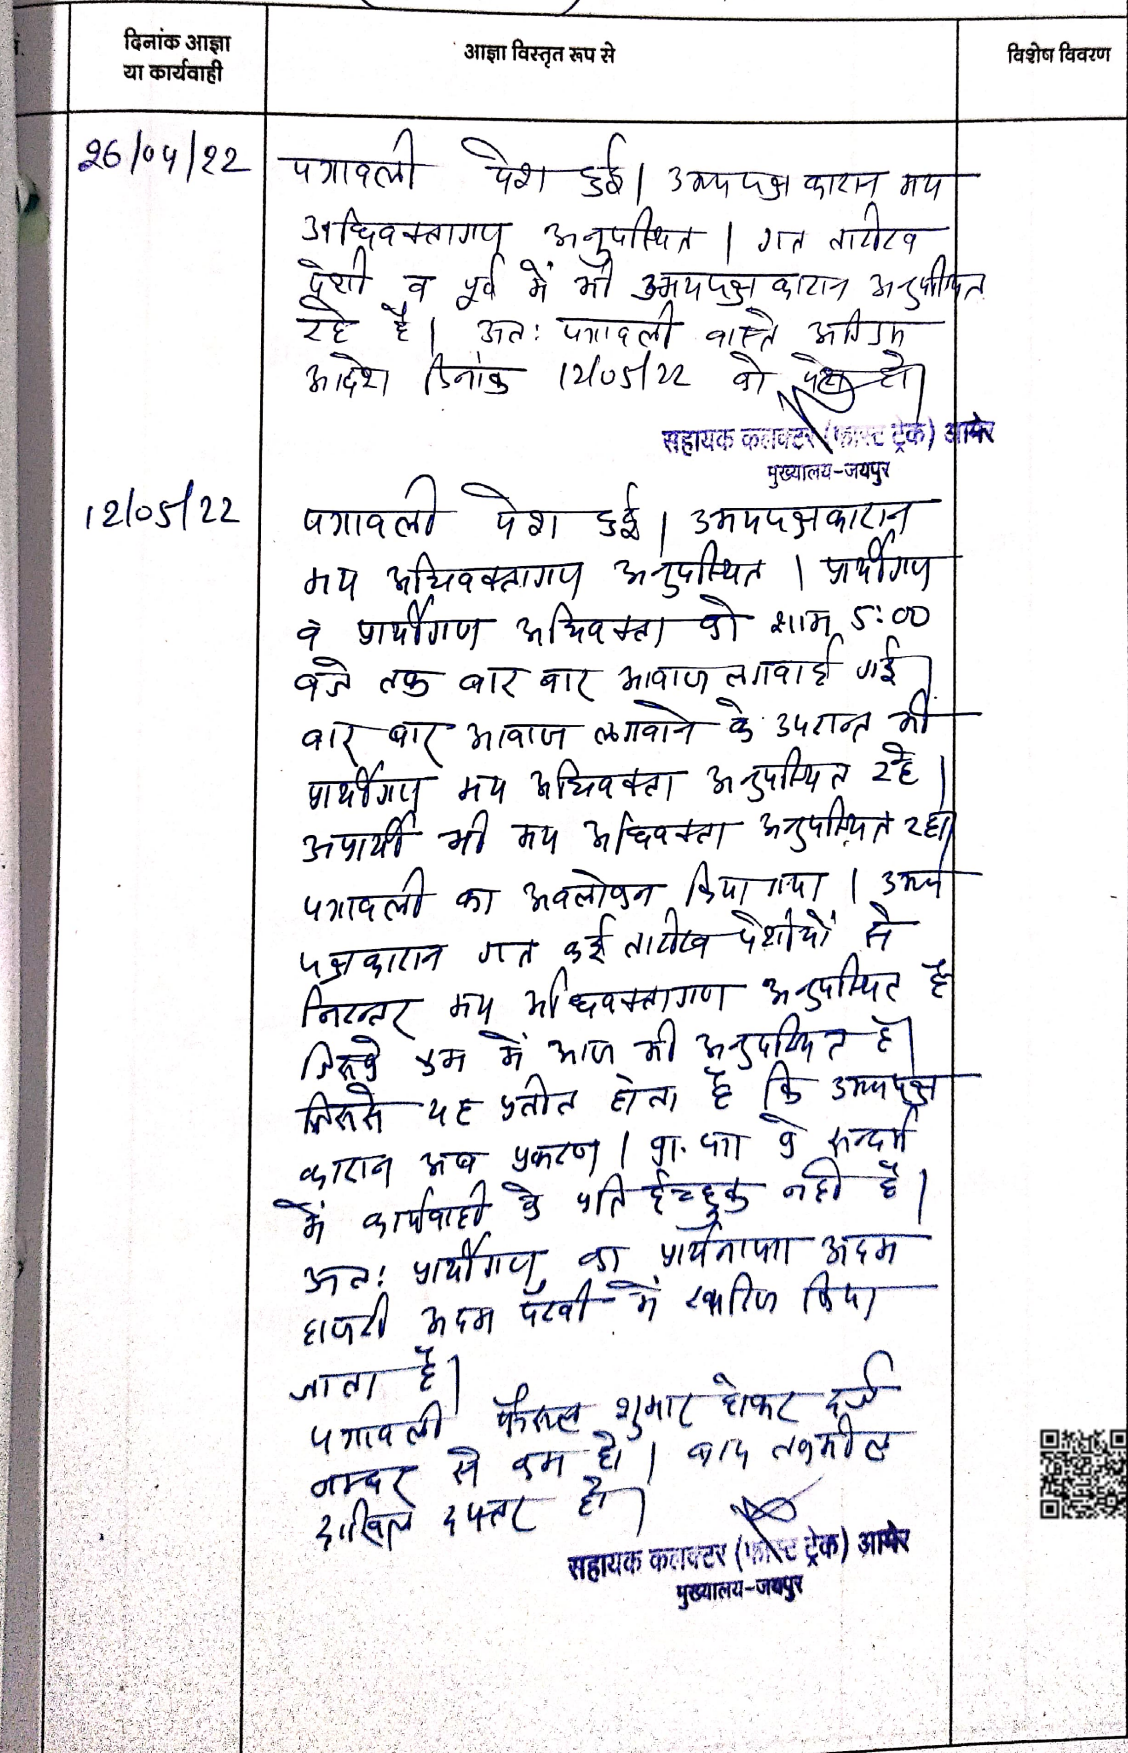 दिनांक आज्ञा
या कार्यवाही
आज्ञा विस्तृत रूप से
विशेष विवरण
26/04/22
पत्रावली पेश हुई। उभयपक्षकारान मय
अधिवक्तागण अनुपस्थित। गत तारीख
पेशी व पूर्व में भी उभयपक्षकारान अनुपस्थित
रहे है। अतः पत्रावली वास्ते अन्तिम
आदेश दिनांक 12/05/22 को पेश हो।
सहायक कलक्टर (फास्ट ट्रेक) आमेर
मुख्यालय-जयपुर
12/05/22
पत्रावली पेश हुई। उभयपक्षकारान
मय अधिवक्तागण अनुपस्थित। प्रार्थीगण
व प्रार्थीगण अधिवक्ता को शाम 5:00
बजे तक बार बार आवाज लगवाई गई।
बार बार आवाज लगवाने के उपरान्त भी
प्रार्थीगण मय अधिवक्ता अनुपस्थित रहे।
अप्रार्थी भी मय अधिवक्ता अनुपस्थित रहा।
पत्रावली का अवलोकन किया गया। उभय
पक्षकारान गत कई तारीख पेशीयों से
निरन्तर मय अधिवक्तागण अनुपस्थित है
जिसके क्रम में आज भी अनुपस्थित है।
जिससे यह प्रतीत होता है कि उभयपक्ष
कारान अब प्रकरण / प्रा. पत्र के सन्दर्भ
में कार्यवाही के प्रति ईच्छुक नही है।
अतः प्रार्थीगण का प्रार्थनापत्र अदम
हाजरी अदम पैरवी में खारिज किया
जाता है।
पत्रावली फैसल शुमार होकर दर्ज
नम्बर से कम हो। बाद तकमील
दाखिल दफ्तर हो।
सहायक कलक्टर (फास्ट ट्रेक) आमेर
मुख्यालय-जयपुर